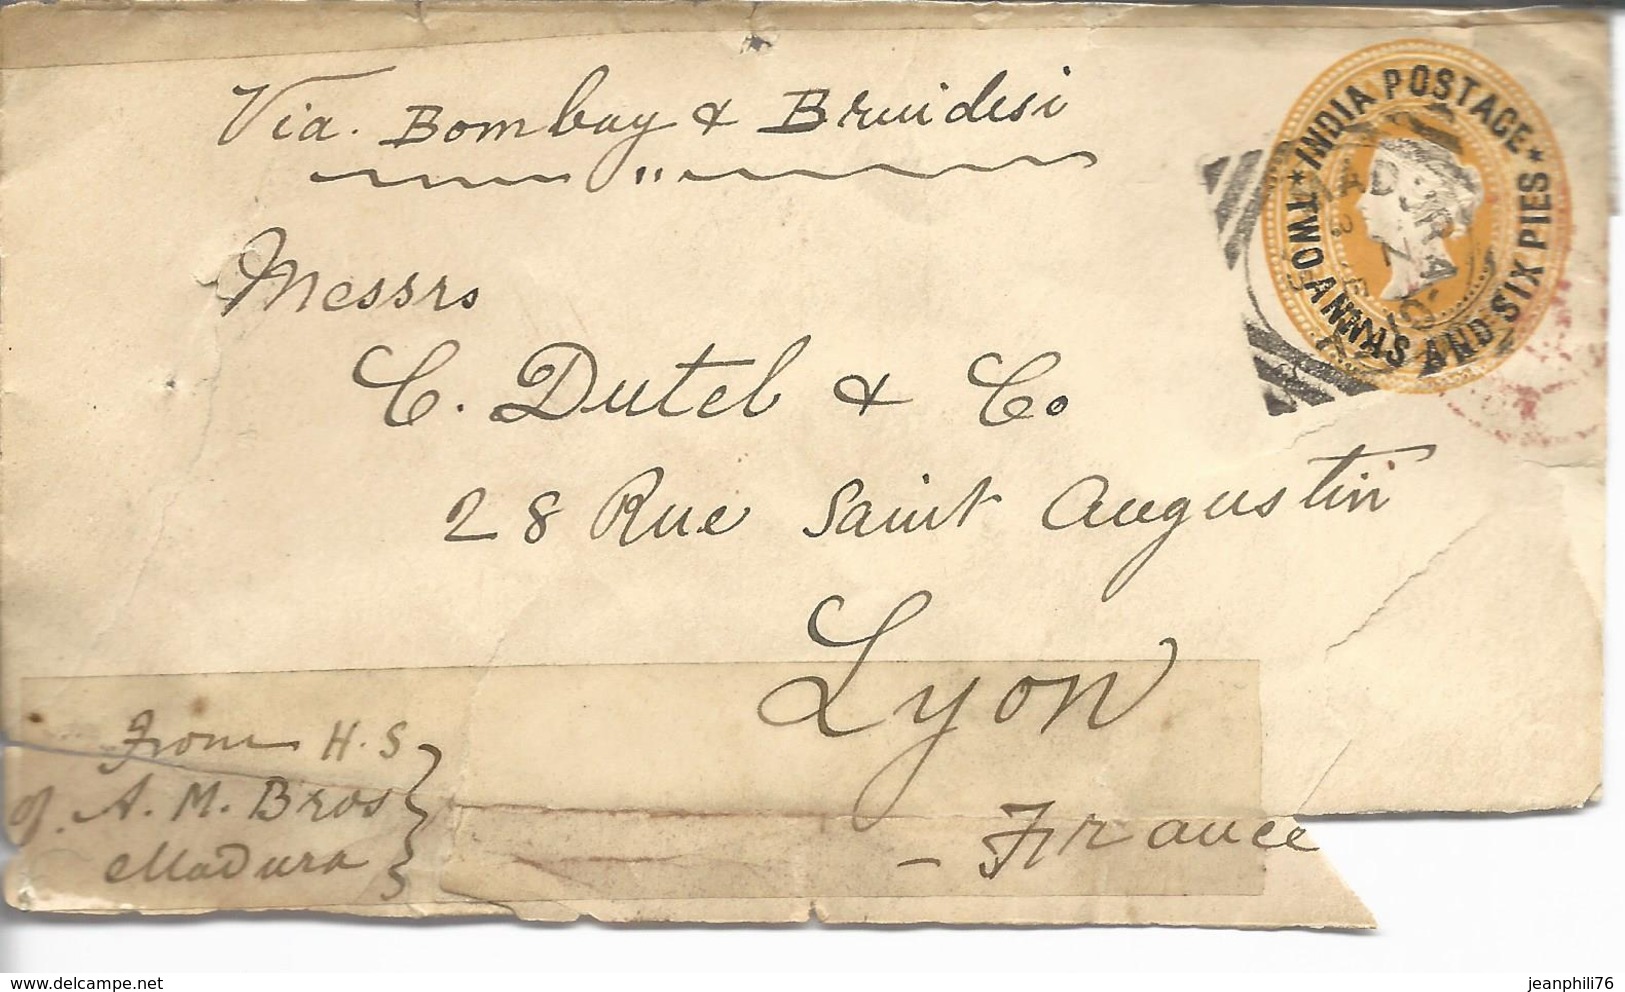 Via. Bombay & Bruidisi
INDIA POSTAGE
TWO ANNAS AND SIX PIES
Messrs
C. Dutel & Co
28 Rue Saint Augustin
Lyon
- France
From H. S
of. A. M. Bros
Madura
jeanphili76